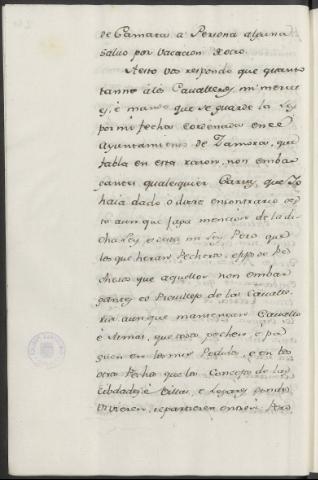 de Camara a Persona alguna
salvo por vacacion de otro.
A esto vos respondo que quanto
tanne a los Cavalleros, mi merced
es, e mando que se guarde la Ley
por mi fecha e ordenada en el
Ayuntamiento de Zamora, que
fabla en esta razon, non embar
gantes qualesquier Cartas, que Yo
haia dado o diere en contrario de es
to aunque faga mencion de la di
cha Ley, e esta mi Ley. Pero que
los que heran Pecheros, e fijos de Pe
cheros que aquellos non embar
gante el Privilegio de la Cavalle
ria aunque mantengan Cavallo
e Armas, que todos pechen e pa
guen en los mis Pedidos, e en los
otros Pechos que los Concejos de las
Cibdades e Villas, e Logares donde
vivieren, repartieren entre si. Pero